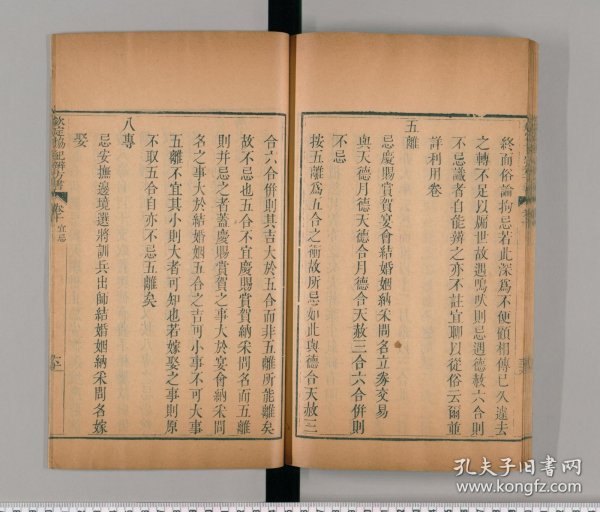 終而俗論拘忌若此深為不便顧相傳已久遽去
之轉不足以厲世故遇鳴吠則忌遇德赦六合則
不忌識者自能辨之亦不註宜聊以從俗云爾並
詳利用卷
五離
忌慶賜賞賀宴會結婚姻納采問名立券交易
與天德月德天德合月德合天赦三合六合併則
不忌
按五離為五合之衝故所忌如此與德合天赦三
合六合併則其吉大於五合而非五離所能離矣
故不忌也五合不宜慶賜賞賀納采問名而五離
則并忌之者蓋慶賜賞賀之事大於宴會納采問
名之事大於結婚姻五合之吉可小事不可大事
五離不宜其小則大者可知也若嫁娶之事則原
不取五合自亦不忌五離矣
八專
忌安撫邊境選將訓兵出師結婚姻納采問名嫁
娶
欽定協紀辨方書 卷十 宜忌
孔夫子旧书网
www.kongfz.com